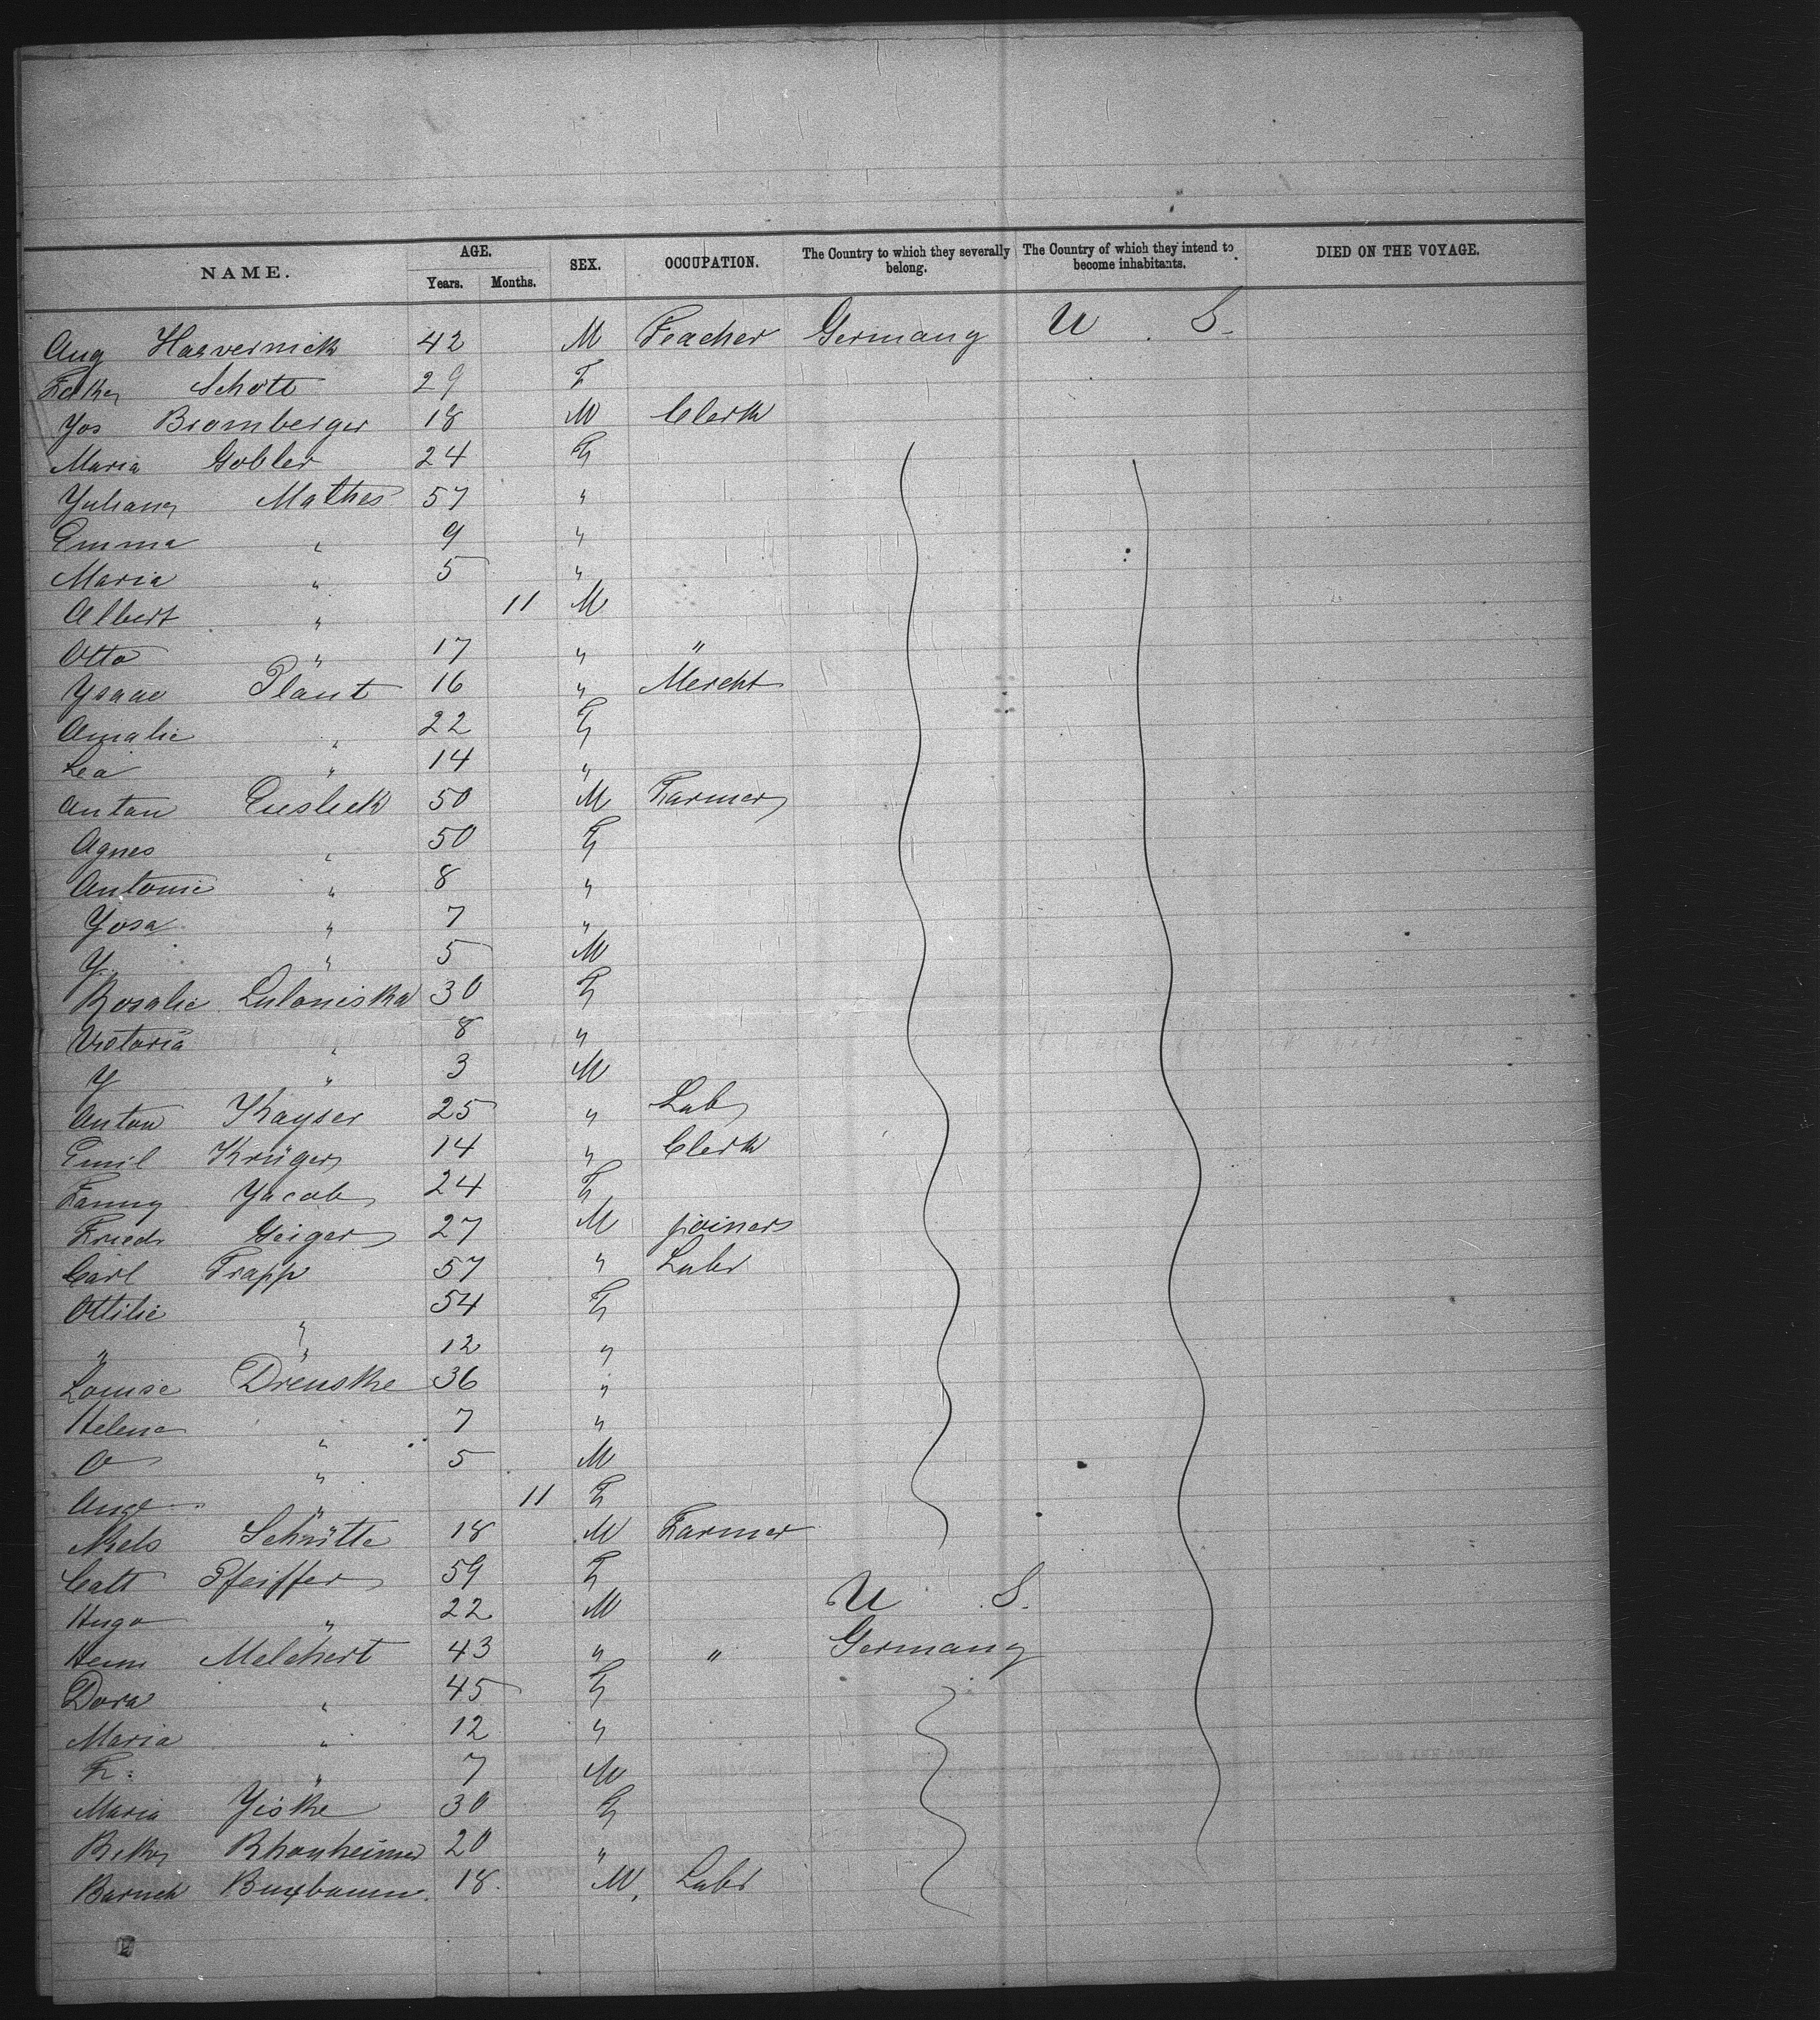 NAME. AGE. Years. Months. SEX. OCCUPATION. The Country to which they severally belong. The Country of which they intend to become inhabitants. DIED ON THE VOYAGE.
Aug Haevernick 42 M Teacher Germany U S.
Schott 29 F
Jos Bromberger 18 M Clerk
Maria Gobler 24 F
Juliana Mathes 57 "
Emma " 9 "
Maria " 5 "
Albert " 11 M
Otto " 17 " "
Ysaac Plaut 16 " Mercht
Amalie " 22 F
Lea " 14 "
Anton 50 M Farmer
Agnes " 50 F
Antonie " 8 "
Josa " 7 "
J. " 5 M
Rosalie 30 F
Victoria " 8 "
J " 3 M
Anton Kayser 25 " Lab
Emil Krüger 14 " Clerk
Fanny Jacob 24 F
Friedr Geiger 27 M joiner
Carl Trapp 57 " Labr
Ottilie " 54 F
" " 12 "
Louise Drenske 36 "
Helene " 7 "
O " 5 M
" 11 F
Niels Schütte 18 M Farmer
Cath Pfeiffer 59 F
Hugo " 22 M U S.
Herm Melchert 43 " " Germany
Dora " 45 F
Maria " 12 "
F. " 7 M
Maria Jiske 30 F
Rhonheimer 20 "
Baruch Buxbaum. 18. M. Labr